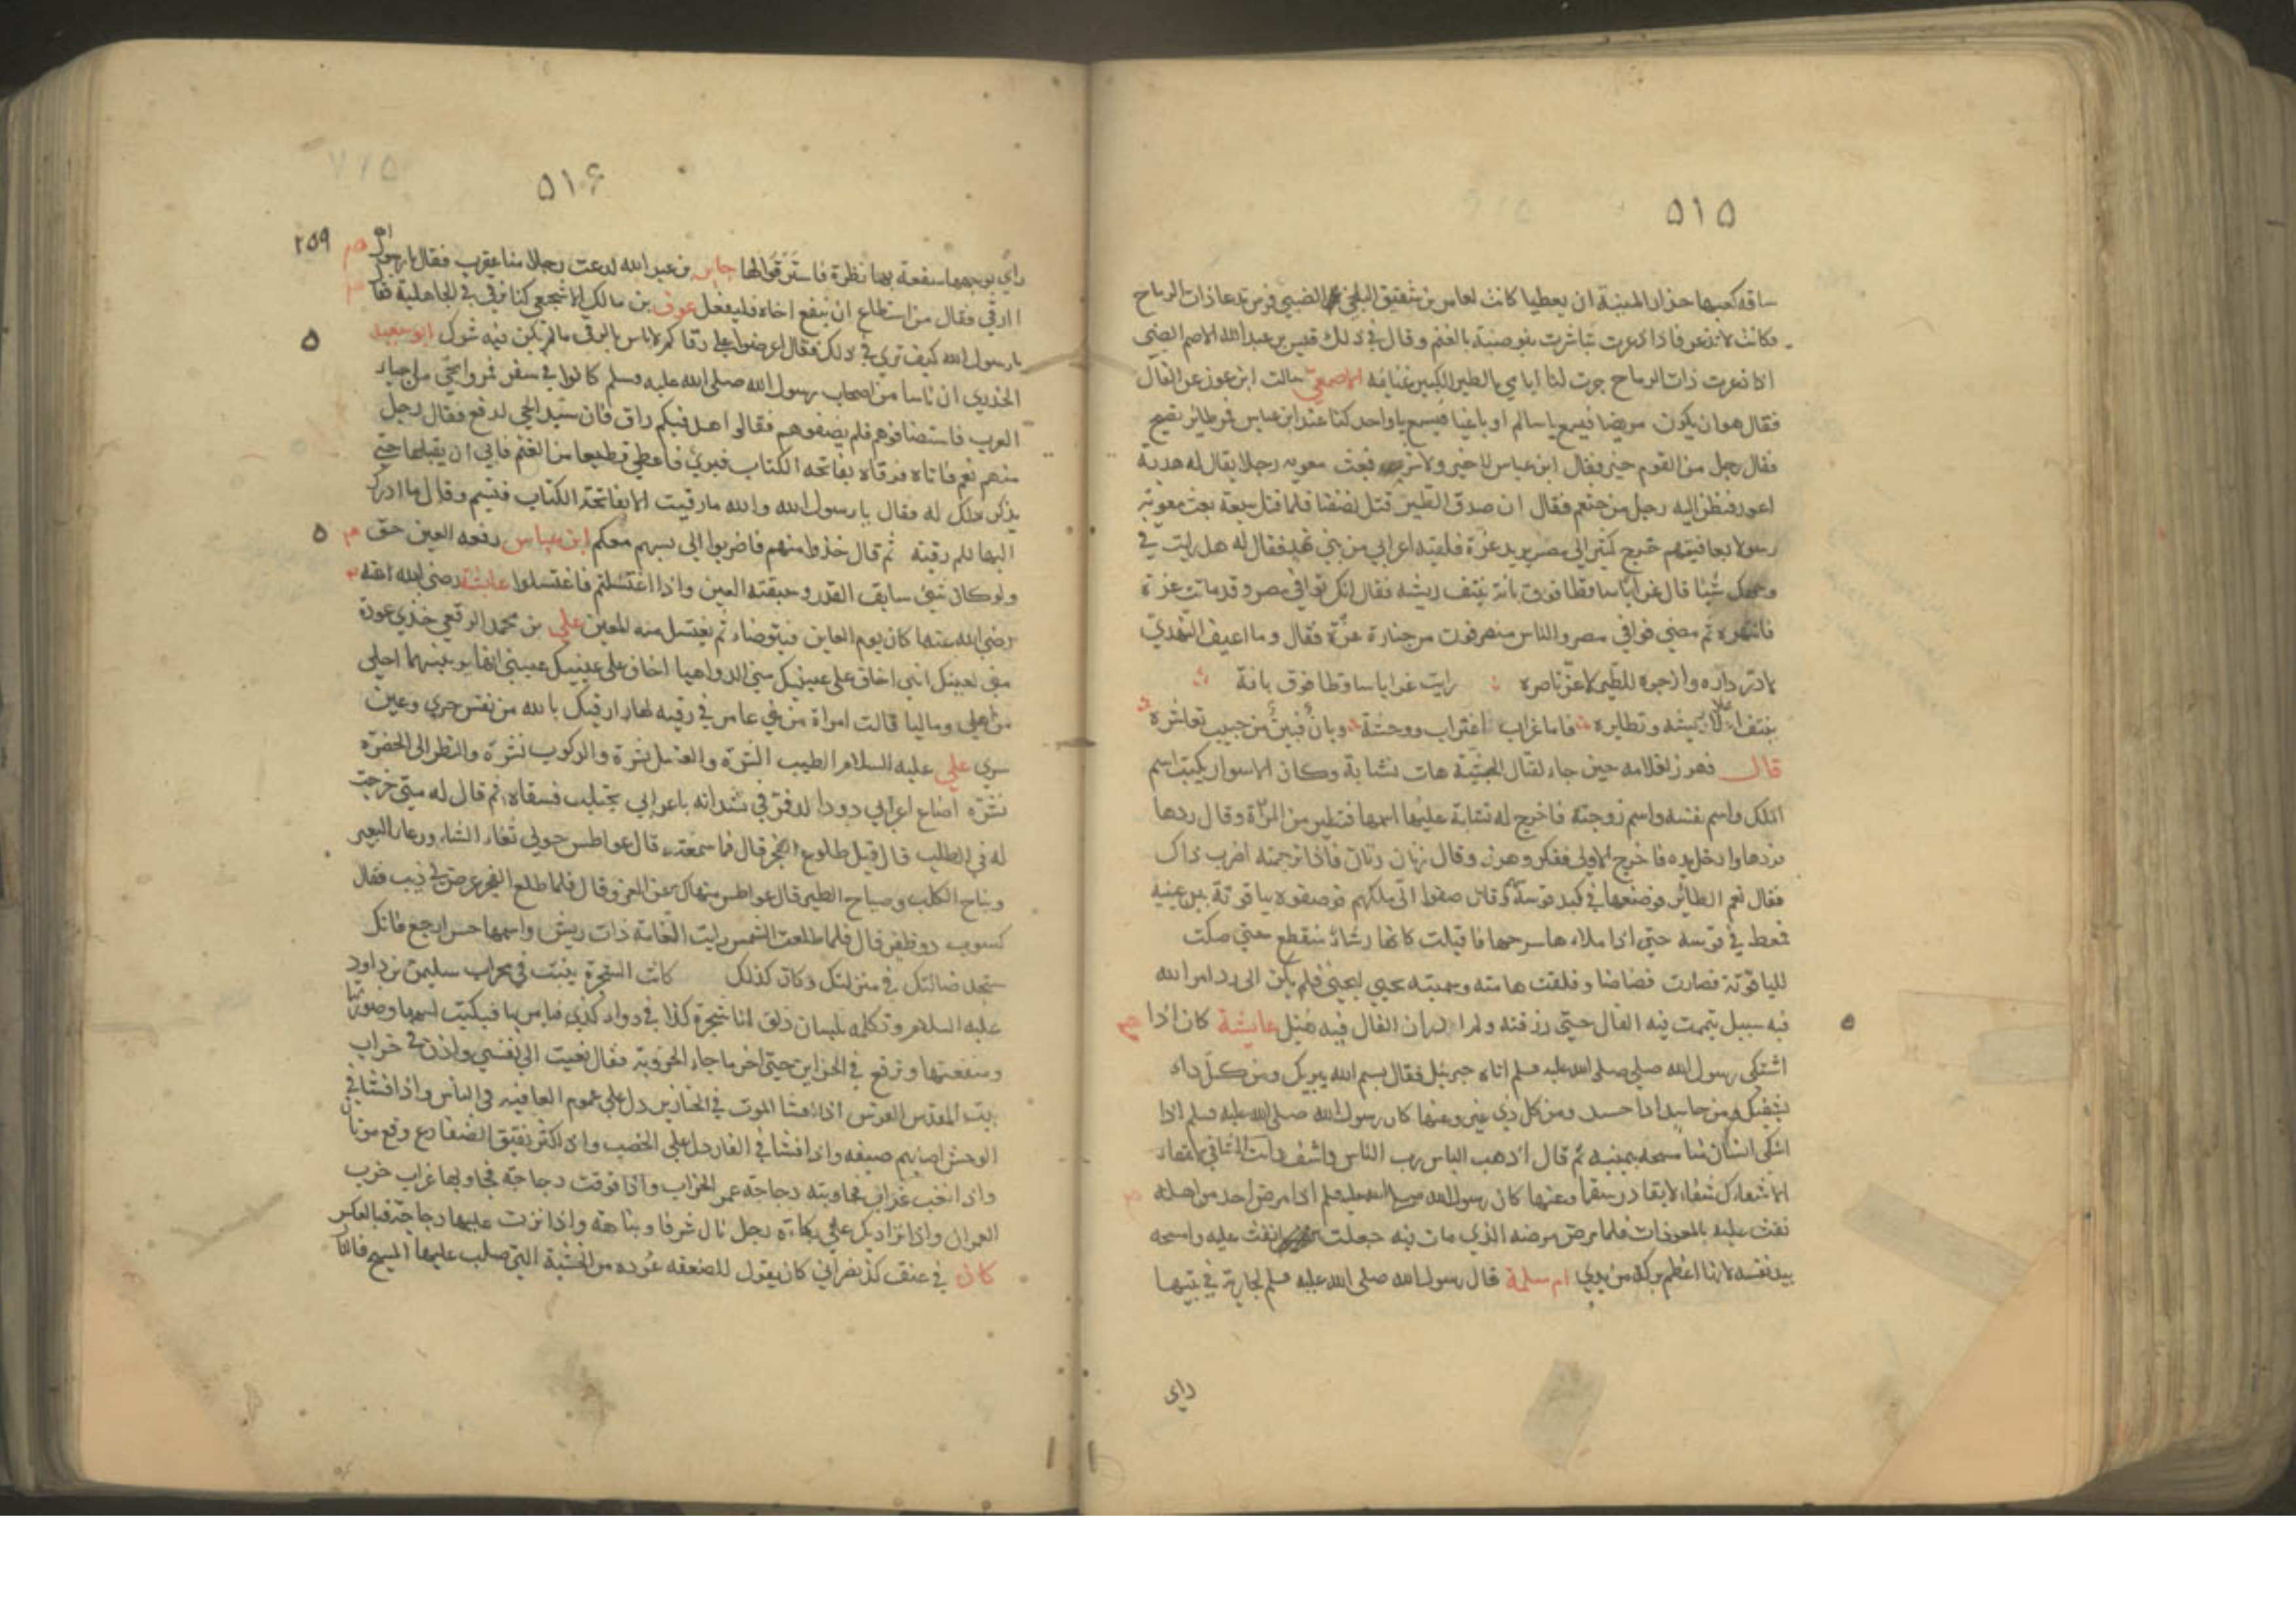 ٥١٥
ساقه كعبها حذار المنية ان يعطبا كانت لعامر بن شقيق الضبي فرس تدعا ذات الرماح
وكانت لا تذعر فاذا ذعرت تباشرت بنو ضبة بالغنم وقال في ذلك قيس بن عبد الله الاصم الضبي
اذا ذعرت ذات الرماح جرت لنا ايامن بالطير الكبير غنايمه الاصمعي سالت ابن عون عن الفال
فقال هو ان يكون مريضا فيسمع يا سالم او باغيا فيسمع يا واجد كنا عند ابن عباس فمر طائر يصيح
فقال رجل من القوم خير فقال ابن عباس لا خير ولا شر بعث معويه رجلا يقال له هدبة
اعور فنظر اليه رجل من خثعم فقال ان صدق الطير قتل نصفنا فلما قتل سبعة بعث معوية
رسولا بعافيتهم خرج كثير الى مصر يريد عزة فلقيه اعرابي من بني نهد فقال له هل رايت في
وجهك شيئا قال غرابا ساقطا فوق بانة ينتف ريشه فقال انك توافي مصر وقد ماتت عزة
فانتهره ثم مضى فوافى مصر والناس منصرفون من جنازة عزة فقال وما اعيف النهدي
لا در دره وازجره للطير لا عز ناصره رايت غرابا ساقطا فوق بانة
ينتف اعلا ريشه وتطايره فاما غراب اغتراب ووحشة وبان فبين من حبيب تعاشره
قال هرمز لغلامه حين جاء لقتال الحبشة هات نشابة وكان الاسوار يكتب اسم
الملك واسم نفسه واسم زوجته فاخرج له نشابة عليها اسمها فتطير من المرأة وقال ردها
فردها وادخل يده فاخرج الاولى ففكر وهرز وقال زنان زنان فاذا ترجمته اضرب ذاك
فقال نعم الطائر فوضعها في كبد قوسه ثم قال صفوا الي ملكهم فوصفوه بياقوتة بين عينيه
فمغط في قوسه حتى اذا ملاءها سرحها فاقبلت كانها رشاء منقطع حتى صكت
الياقوتة فصارت فضاضا وفلقت هامته وسميته يحيى ليحيى فلم يكن الى رد امر الله
فيه سبيل تيممت فيه الفال حتى رزقته ولم ادر ان الفال فيه يفيل عايشة كان اذا
اشتكى رسول الله صلى الله عليه وسلم اتاه جبرئيل فقال بسم الله يبريك ومن كل داء
يشفيك ومن حاسد اذا حسد ومن كل ذي عين وعنها كان رسول الله صلى الله عليه وسلم اذا
اشتكى انسان منا مسحه بيمينه ثم قال اذهب الباس رب الناس واشف وانت الشافي لا شفاء
الا شفاءك شفاء لا يغادر سقما وعنها كان رسول الله صلى الله عليه وسلم اذا مرض احد من اهله
نفث عليه بالمعوذات فلما مرض مرضه الذي مات فيه جعلت انفث عليه وامسحه
بيد نفسه لانها اعظم بركة من يدي ام سلمة قال رسول الله صلى الله عليه وسلم لجارية في بيتها
راى
٥١٦
٢٥٩
راى بوجهها سفعة بها نظرة فاسترقوا لها جابر بن عبد الله لدغت رجلا منا عقرب فقال يا رسول الله
ارقي فقال من استطاع ان ينفع اخاه فليفعل عوف بن مالك الاشجعي كنا نرقي في الجاهلية فقلنا
يا رسول الله كيف ترى في ذلك فقال اعرضوا علي رقاكم لا باس بالرقى ما لم يكن فيه شرك ابو سعيد
الخدري ان ناسا من اصحاب رسول الله صلى الله عليه وسلم كانوا في سفر فمروا بحي من احياء
العرب فاستضافوهم فلم يضيفوهم فقالوا هل فيكم راق فان سيد الحي لدغ فقال رجل
منهم نعم فاتاه فرقاه بفاتحة الكتاب فبرئ فاعطي قطيعا من الغنم فابى ان يقبلها حتى
يذكر ذلك له فقال يا رسول الله والله ما رقيت الا بفاتحة الكتاب فتبسم وقال ما ادراك
انها لهم رقية ثم قال خذوا منهم فاضربوا لي بسهم معكم ابن عباس رفعه العين حق
ولو كان شئ سابق القدر سبقته العين واذا اغتسلتم فاغتسلوا عائشة رضي الله
رضي الله عنها كان يوم العاين فيتوضاء ثم يغتسل منه المعين علي بن محمد خذي عوذة
مني لعينك انني اخاف على عينيك مني الدواهيا اخاف على عينيك عيني
من اهلي وماليا قالت امراة من بني عامر في رقية لها ارقيك بالله من نفس حرى وعين
سرى علي عليه السلام الطيب نشرة والعسل نشرة والركوب نشرة والنظر الى الخضرة
نشرة اضاع اعرابي ذودا له فمر في نشدانه باعرابي يحتلب فسقاه ثم قال له متى خرجت
له في الطلب قال قبل طلوع الفجر قال فما سمعت قال عواطس حولي ثغاء الشاء ورغاء البعير
ونباح الكلب وصياح الطير قال عواطس تنهاك عن الغدو قال فلما طلع الفجر عرض لي ذيب فقال
كسوب ذو ظفر قال فلما طلعت الشمس رايت النعامة ذات ريش واسمها حسن ارجع فانك
ستجد ضالتك في منزلتك وكان كذلك كانت الشجرة ينبت في محراب سليمن بن داود
عليه السلام وتكلمه بلسان ذلق انا شجرة كذا في دواء كذا فيامر بها فيكتب اسمها وصورتها
ومنفعتها وترفع في الخزاين حتى اخر ما جاء الخروبة فقال نعيت الي نفسي واذن في خراب
بيت المقدس الفرس اذا فشا الموت في الخنازير دل على عموم العافية في الناس واذا فشا في
الوحش اصابهم ضيقه واذا فشا في الفار دل على الخصب واذا اكثر نقيق الضفادع وقع موتان
واذا نعب غراب فجاوبته دجاجة عمر الخراب واذا قوقت دجاجة فجاوبها غراب خرب
العمران واذا نزا ديك على تكاءة رجل نال شرفا ونباهة واذا نزت عليها دجاجة فبالعكس
كان في عنق نصراني كان يقول للصنعة عوده من الخشبة التي صلب عليها المسيح فالنا